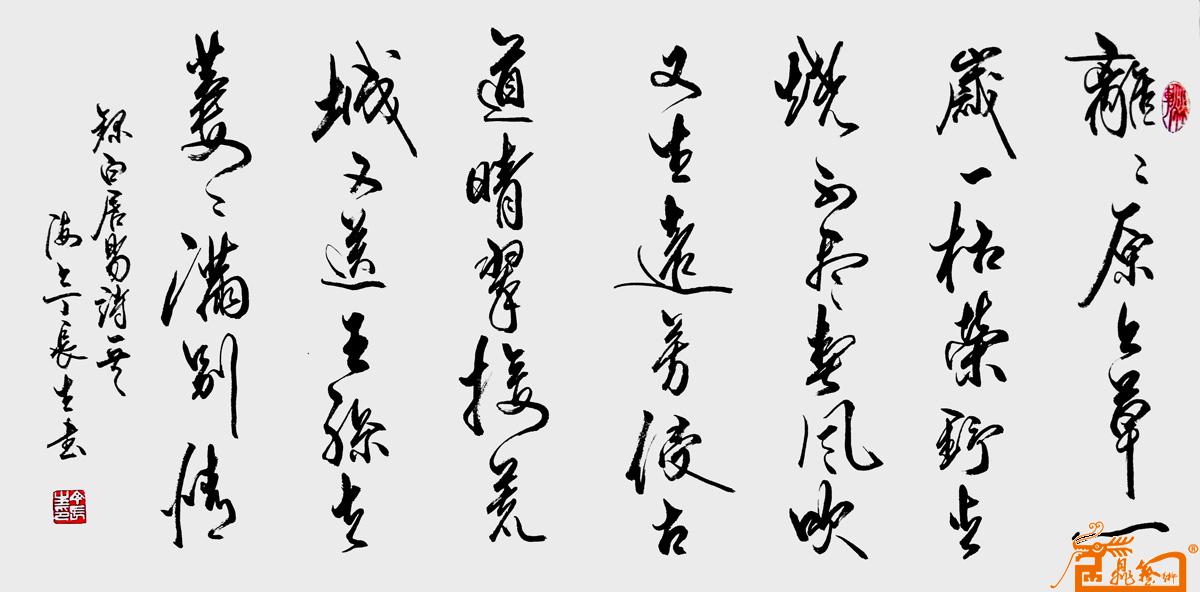 離〻原上草一
歲一枯榮野火
燒不尽春風吹
又生遠芳侵古
道晴翠接荒
城又送王孫去
萋〻滿別情
錄白居易詩一首
海上丁長生書